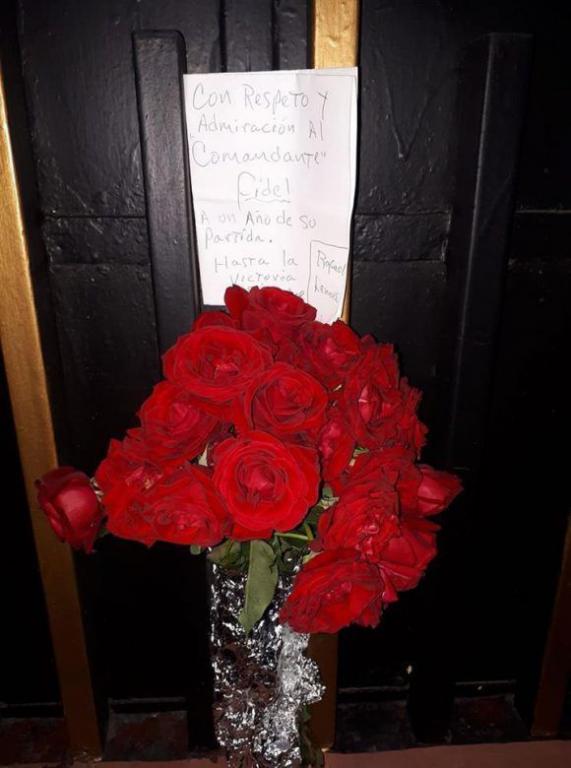 Con Respeto y
"Admiración Al
Comandante"
Fidel
A un Año de su
Partida.
Hasta la
Victoria
Rafael